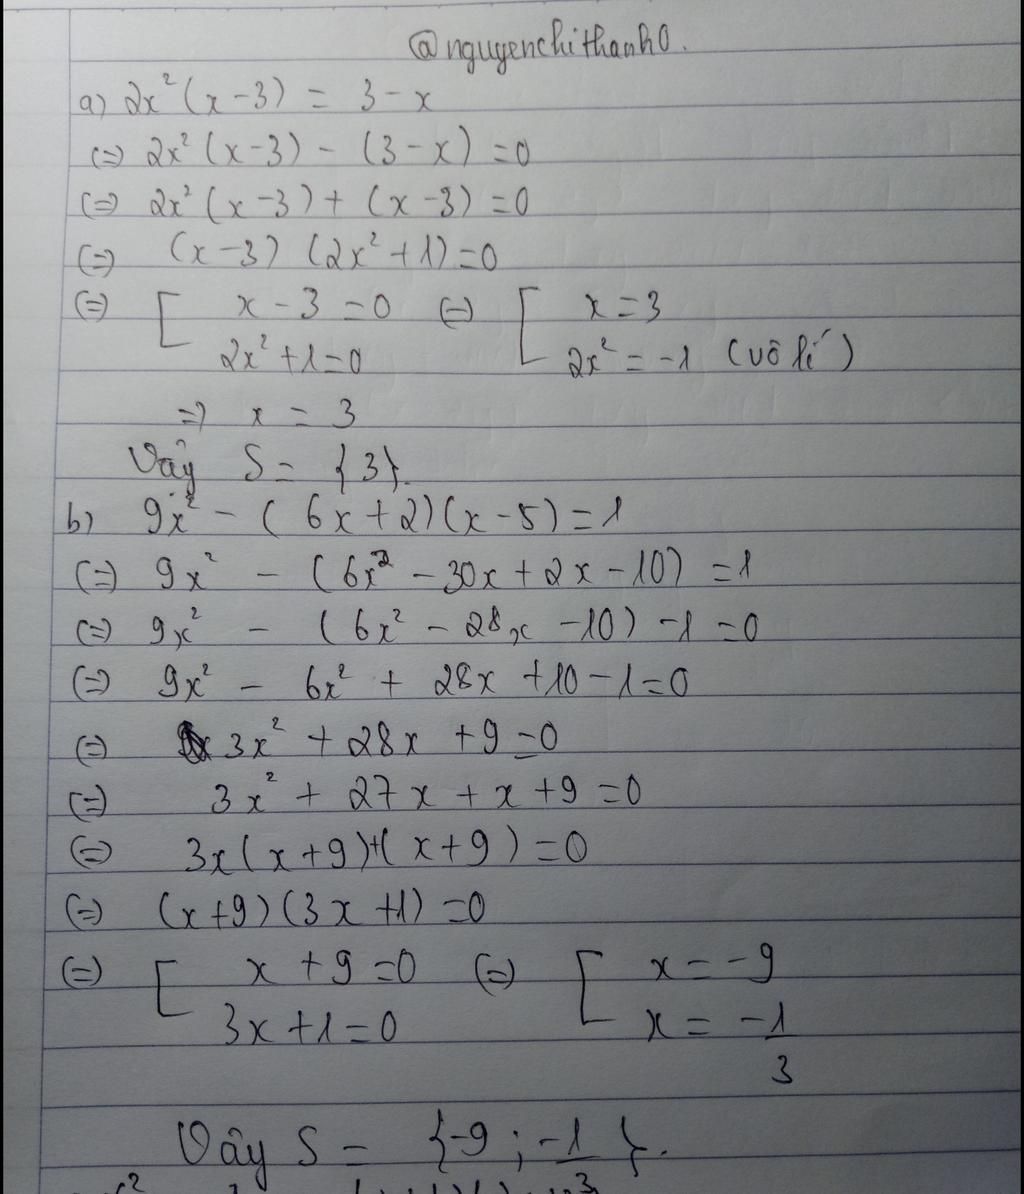 @nguyenchithanh0.
a) 2x²(x-3) = 3-x
(=) 2x²(x-3) - (3-x) = 0
(=) 2x²(x-3) + (x-3) = 0
(=) (x-3)(2x²+1) = 0
(=) [ x-3 = 0 (=) [ x = 3
2x²+1 = 0 2x² = -1 (vô lí)
=> x = 3
Vậy S = {3}.
b) 9x² - (6x+2)(x-5) = 1
(=) 9x² - (6x² - 30x + 2x - 10) = 1
(=) 9x² - (6x² - 28x - 10) - 1 = 0
(=) 9x² - 6x² + 28x + 10 - 1 = 0
(=) 3x² + 28x + 9 = 0
(=) 3x² + 27x + x + 9 = 0
(=) 3x(x+9)+(x+9) = 0
(=) (x+9)(3x+1) = 0
(=) [ x+9 = 0 (=) [ x = -9
3x+1 = 0 x = -1/3
Vây S = {-9; -1/3}.